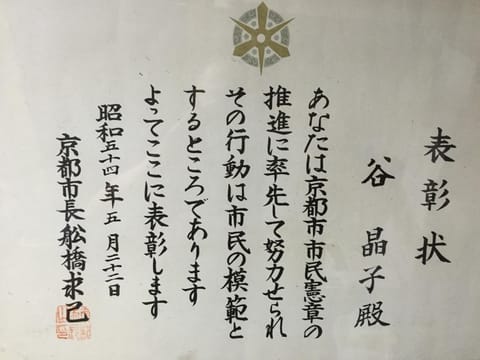 表彰状
谷 晶子殿
あなたは京都市市民憲章の
推進に率先して努力せられ
その行動は市民の模範と
するところであります
よってここに表彰します
昭和五十四年五月二十二日
京都市長舩橋求己